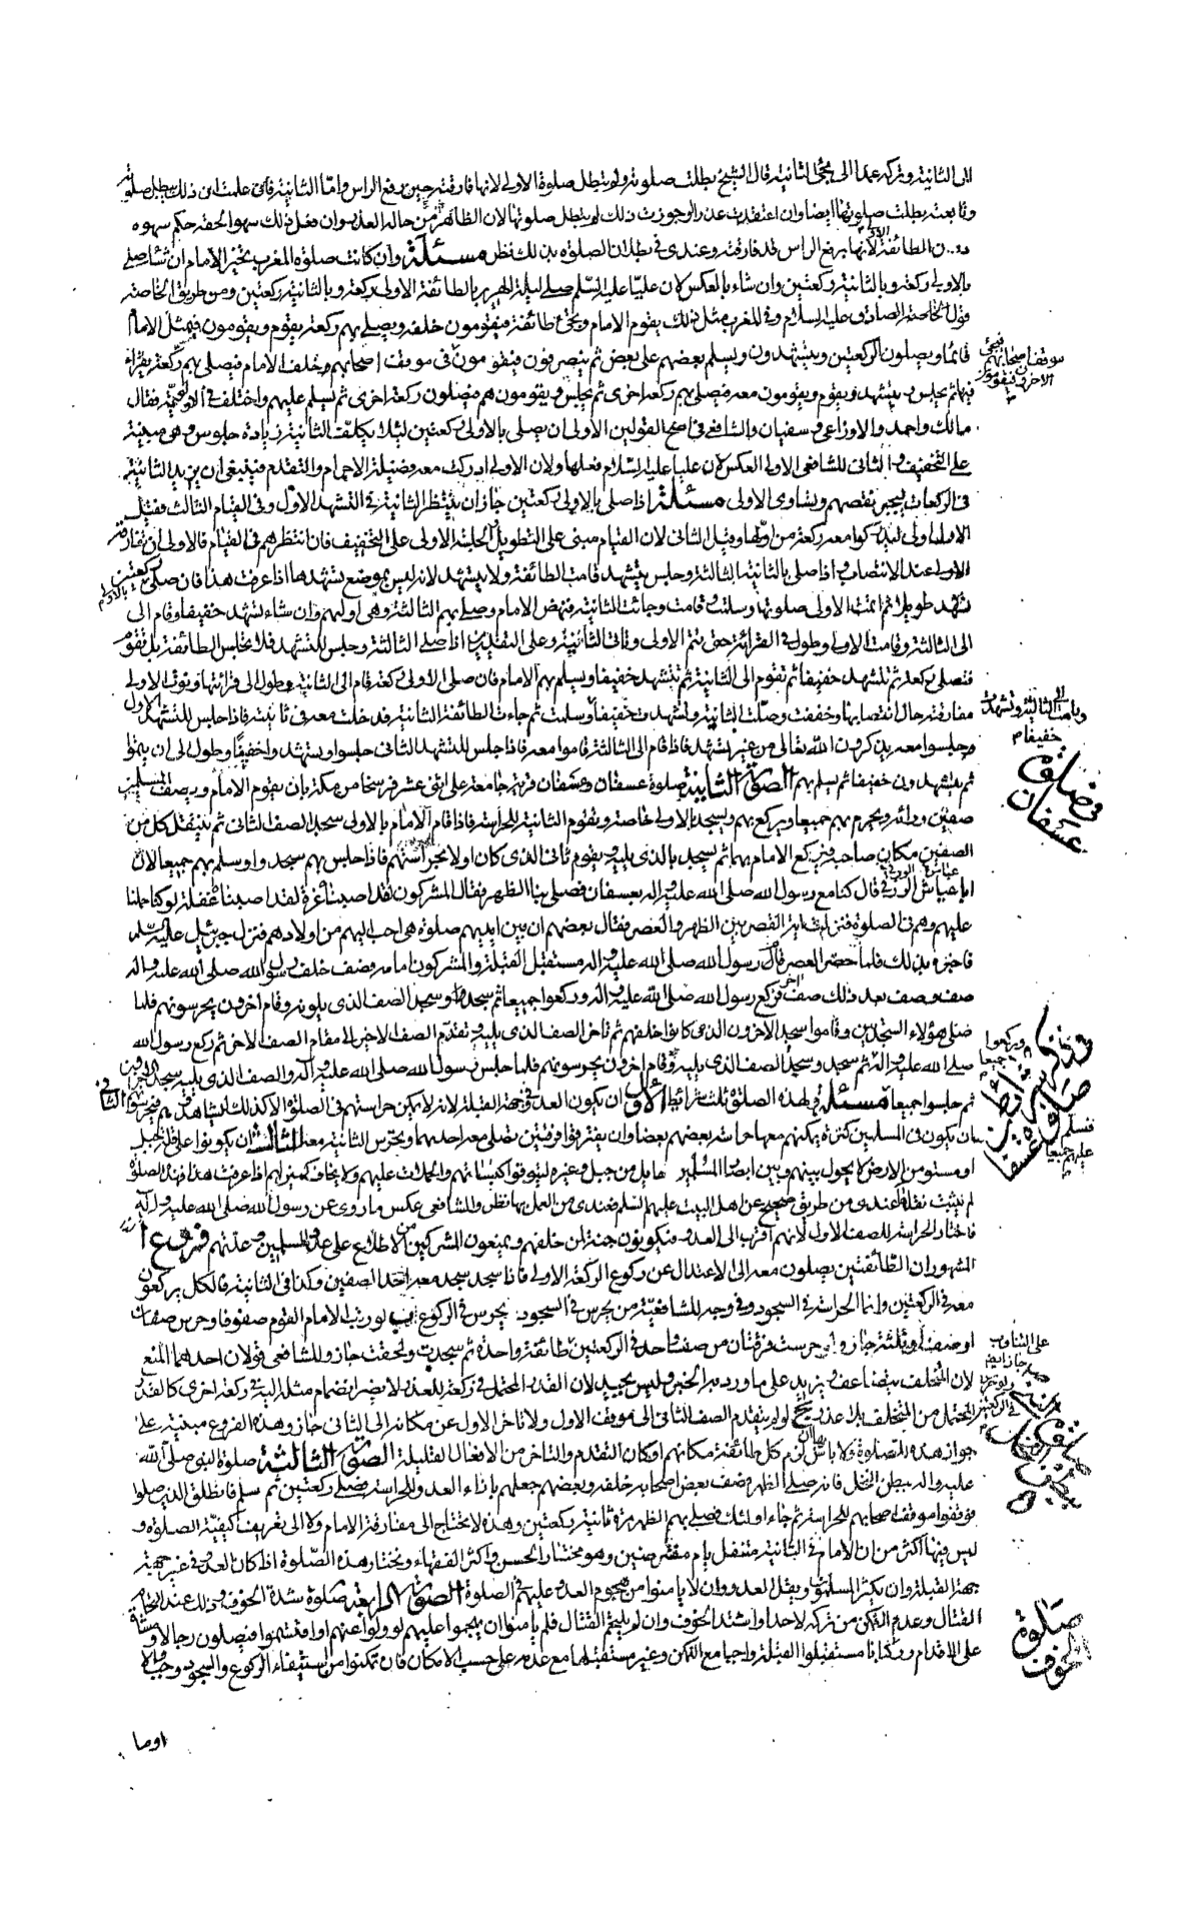 الى الثانية وتركه عمدا الى مجئ الثانية قال الشيخ بطلت صلوته ولم يبطل صلوة الاولى لانها فارقته حين رفع الراس واما الثانية فان علمت ان ذلك يبطل صلوته
وتابعته بطلت صلوتها ايضا وان اعتقدت عدم الوجوب ذلك لم يبطل صلوتها لان الظاهر من حاله العذر وان فعل ذلك سهوا لحقه حكم سهوه
دون الطائفة الاولى لانها برفع الراس قد فارقته وعندى فى بطلان الصلوة بذلك نظر مسئلة وان كانت صلوة المغرب تخير الامام ان شاء صلى
بالاولى ركعة وبالثانية ركعتين وان شاء بالعكس لان عليا عليه السلم صلى ليلة الهرير بالطائفة الاولى ركعة وبالثانية ركعتين ومن طريق الخاصة
قول الصادق عليه السلام وفى المغرب مثل ذلك يقوم الامام وتجئ طائفة فيقومون خلفه ويصلى بهم ركعة ثم يقوم ويقومون فيمثل الامام
قائما ويصلون الركعتين ويتشهدون ويسلم بعضهم على بعض ثم ينصرفون فيقومون فى موقف اصحابهم خلف الامام فيصلى بهم ركعة يقرأ
فيها ثم يجلس ويتشهد ويقوم ويقومون معه فيصلى بهم ركعة اخرى ثم يجلس ويقومون هم فيصلون ركعة اخرى ثم يسلم عليهم واختلف فى الاولوية فقال
مالك واحمد والاوزاعى وسفيان والشافعى فى اصح القولين الاولى ان يصلى بالاولى ركعتين لئلا يكلف الثانية زيادة جلوس وهى مبنية
على التخفيف والثانى للشافعى الاولى العكس لان عليا عليه السلام فعلها ولان الاولى ادركت معه فضيلة الاحرام والتقدم فينبغى ان يزيد الثانية
فى الركعات ليجبر نقصهم ويساوى الاولى مسئلة اذا صلى بالاولى ركعتين جاز ان ينتظر الثانية فى التشهد الاول وفى القيام الثالث فقيل
الاول اولى ليدركوا معه ركعة من اولها وقيل الثانى لان القيام مبنى على التطويل والجلسة الاولى على التخفيف فان انتظرهم فى القيام فالاولى ان تفارقه
الاولى عند الانتصاب واذا صلى بالثانية الثالثة وجلس يتشهد قامت الطائفة ولا يتشهد لانه ليس بموضع تشهدها اذا عرفت هذا فان صلى بالاولى ركعتين
تشهد طويلا ثم اتمت الاولى صلوتها وسلمت وقامت وجائت الثانية فنهض الامام وصلى بهم الثالثة وهى اوليهم وان شاء تشهد خفيفا وقام الى
الى الثالثة وقامت الاولى وطول فى القرائة حتى تتم الاولى وتاتى الثانية وعلى التقديرين اذا صلى الثالثة وجلس للتشهد فلا تجلس الطائفة بل تقوم
فتصلى ركعة ثم تتشهد خفيفا ثم تقوم الى الثانية ثم تتشهد خفيفا ويسلم بهم الامام فان صلى الاولى ركعة قام الى الثانية وطول فى قرائتها ونوت الاولى
مفارقته حال انتصابها وخففت وصلت الثانية وتشهدت خفيفا وسلمت ثم جاءت الطائفة الثانية فدخلت معه فى ثانيته فاذا جلس للتشهد الاول
وجلسوا معه يذكرون الله تعالى من غير تشهد فاذا قام الى الثالثة قاموا معه فاذا جلس للتشهد الثانى جلسوا وتشهدوا خفيفا وطول الى ان يتموا
ثم يتشهدون خفيفا ثم يسلم بهم الصورة الثانية صلوة عسفان وعسفان قرية جامعة على اثنى عشر فرسخا من مكة بان يقوم الامام ويصف المسلمين
صفين ورائه ويحرم بهم جميعا ويركع بهم ويسجد بالاولى خاصة ويقوم الثانية للحراسة فاذا قام الامام بالاولى سجد الصف الثانى ثم ينتقل كل من
الصفين مكان صاحبه فيركع الامام بهما ثم يسجد بالذى يليه ويقوم ثانى الذى كان اولا بحراستهم فاذا جلس بهم سجدوا وسلم بهم جميعا لان
ابا عياش الزرقى قال كنا مع رسول الله صلى الله عليه واله بعسفان فصلى بنا الظهر فقال المشركون لقد اصبنا غرة لقد اصبنا غفلة لو كنا حملنا
عليهم وهم فى الصلوة فنزلت اية القصر بين الظهر والعصر فقال بعضهم ان بين ايديهم صلوة هى احب اليهم من اولادهم فنزل جبرئيل عليه السلم
فاخبره بذلك فلما حضر العصر قام رسول الله صلى الله عليه واله مستقبل القبلة والمشركون امامه وصف خلف رسول الله صلى الله عليه واله
صف وصف بعد ذلك صف اخر فركع رسول الله صلى الله عليه واله وركعوا جميعا ثم سجد وسجد الصف الذى يلونه وقام اخرون يحرسونهم فلما
صلى هؤلاء السجدتين وقاموا سجد الاخرون الذى كانوا خلفهم ثم تاخر الصف الذى يليه وتقدم الصف الاخير الى مقام الصف الاخر ثم ركع رسول الله
صلى الله عليه واله ثم سجد وسجد الصف الذى يليه وقام اخرون يحرسونهم فلما جلس رسول الله صلى الله عليه واله والصف الذى يليه سجد الاخرون
ثم جلسوا جميعا مسئلة لهذه الصلوة ثلث شرائط الاول ان يكون العدو فى جهة القبلة لانه لا يمكن حراستهم فى الصلوة الا كذلك ليشاهدوهم فيحرسوا الثانى
ان يكون فى المسلمين كثرة يمكنهم معها حراسة بعضهم بعضا وان يفترقوا فرقتين تصلى معه احدهما ويحترس الثانية معه الثالث ان يكونوا على قلة جبل
او مستو من الارض لا يحول بينهم وبين ابصار المسلمين حايل من جبل وغيره ليتوقوا كبساتهم والحملات عليهم ولا يخاف كمين لهم اذا عرفت هذا فهذه الصلوة
لم تثبت نقلها عندى من طريق صحيح عن اهل البيت عليهم السلم فعندى من العمل بها نظر والشافعى عكس ما روى عن رسول الله صلى الله عليه واله
فاختار الحراسة للصف الاول لانهم اقرب الى العدو فيكونون جنة لمن خلفهم ويمنعون المشركين من الاطلاع على عدد المسلمين وعدتهم فروع ا
المشهور ان الطائفتين يصلون معه الى الاعتدال عن ركوع الركعة الاولى فاذا سجد سجد معه احد الصفين وكذا فى الثانية فالكل يركعون
معه فى الركعتين وانما الحراسة فى السجود وفى وجه للشافعية من يحرس فى السجود يحرس فى الركوع ب لو رتب الامام القوم صفوفا وحرس صفان
او صف او ثلثة جاز ولو حرست فرقتان من صف واحد فى الركعتين طائفة واحدة ثم سجدت ولحقت جاز وللشافعى قولان احدهما المنع
لان المتخلف يتضاعف ويزيد على ما ورد به الخبر وليس بجيد لان القدر المحتمل فى ركعة للعذر لا يضر انضمام مثله اليه فى ركعة اخرى كالقدر
المحتمل من المتخلف بلا عذر ج لو لم يتقدم الصف الثانى الى موقف الاول ولا تاخر الاول عن مكانه الى الثانى جاز وهذه الفروع مبنية على
جواز هذه الصلوة ولا باس بها ان لزم كل طائفة مكانهم او كان التقدم والتاخر من الافعال لقليلة الصورة الثالثة صلوة النبى صلى الله
عليه واله ببطن النخل فانه صلى الظهر وصف بعض اصحابه خلفه وبعضهم جعلهم بازاء العدو للحراسة فصلى ركعتين ثم سلم فانطلق الذين صلوا
فوقفوا موقف اصحابهم للحراسة ثم جاء اولئك فصلى بهم الظهر مرة ثانية ركعتين وهذه لا يحتاج الى مفارقة الامام ولا الى تعريف كيفية الصلوة و
ليس فيها اكثر من ان الامام فى الثانية متنفل يام مفترضين وهو مختار الحسن واكثر الفقهاء ونختار هذه الصلوة اذا كان العدو فى غير جهة
جهة القبلة وان يكثر المسلمون ويقل العدو وان لا يامنوا من هجوم العدو عليهم فى الصلوة الصورة الرابعة صلوة شدة الخوف وذلك عند التحام
القتال وعدم التمكن من تركه لاحد او اشتد الخوف وان لم يلتحم القتال فلم يامنوا ان يهجموا عليهم لو ولوا عنهم او انقسموا فيصلون رجالا ومشاة
على الاقدام وركبانا مستقبلوا القبلة واجبا مع التمكن وغير مستقبلها مع عدمه على حسب الامكان فان تمكنوا من استيفاء الركوع والسجود وجب والا
فى صلوة عسفان
صلوة الخوف
اوما